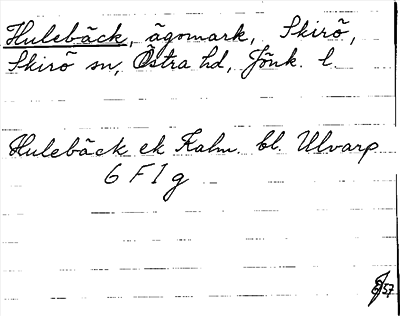 Hulebäck, ägomark, Skirö,
Skirö sn, Östra hd, Jönk. l.
Hulebäck ek Kalm. bl. Ulvarp
6 F 1 g